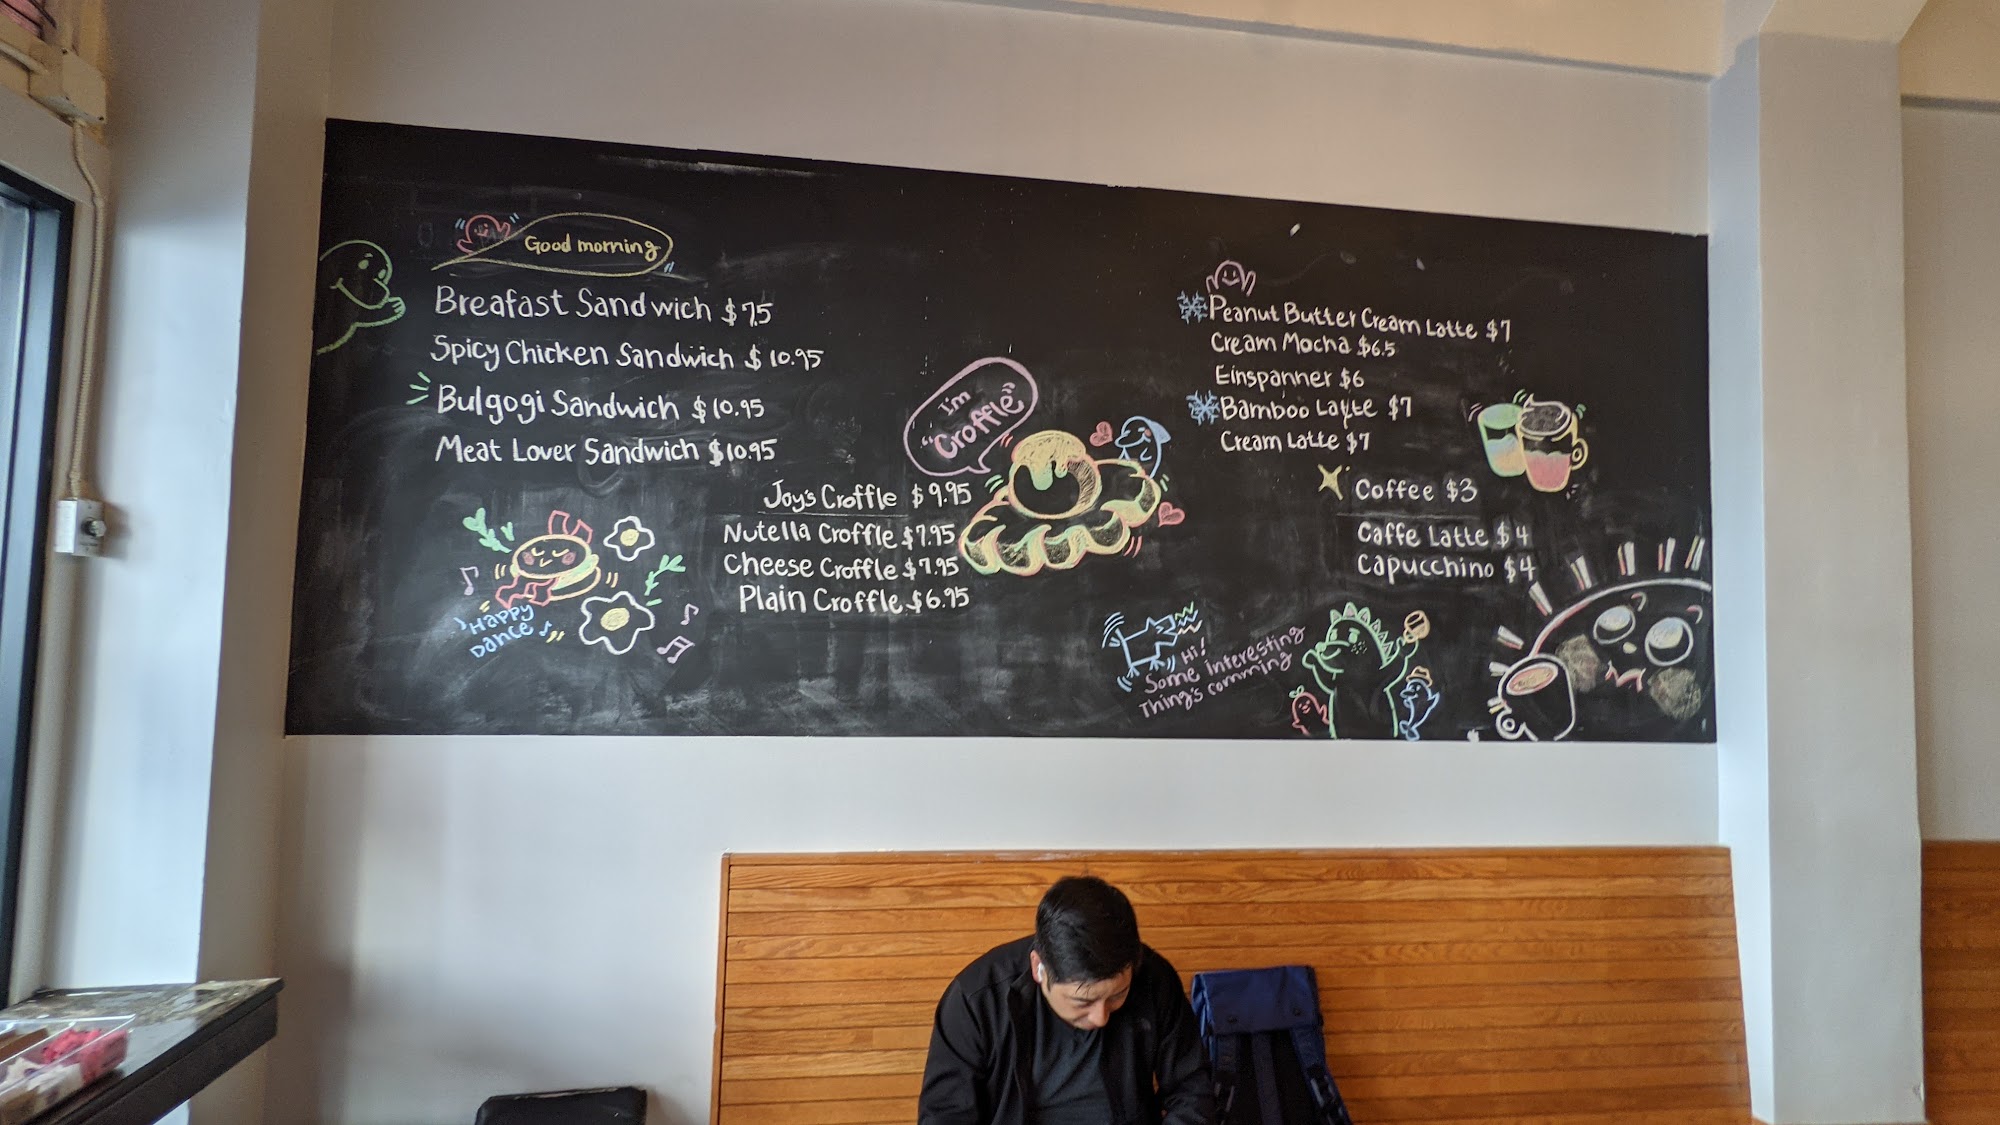 Good morning
Breafast Sandwich $7.5
Spicy Chicken Sandwich $10.95
Bulgogi Sandwich $10.95
Meat Lover Sandwich $10.95
Happy
Dance
I'm
"Croffle"
Joy's Croffle $9.95
Nutella Croffle $7.95
Cheese Croffle $7.95
Plain Croffle $6.95
Peanut Butter Cream Latte $7
Cream Mocha $6.5
Einspanner $6
Bamboo Latte $7
Cream Latte $7
Coffee $3
Caffe Latte $4
Capucchino $4
Hi!
Some interesting
Thing's comming